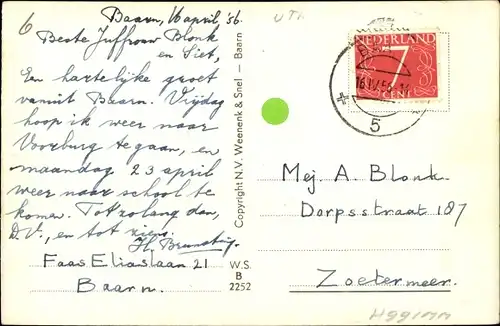 6
Baarn, 16 april '56.
Beste Juffrouw Blonk
en Siet,
Een hartelijke groet
vanuit Baarn. Vrijdag
hoop ik weer naar
Voorburg te gaan, en
maandag 23 april
weer naar school te
komen. Tot zolang dan,
D.V., en tot ziens.
H.
Faas Eliaslaan 21
Baarn.
Copyright N.V. Weenenk & Snel — Baarn
W.S.
B
2252
UT
NEDERLAND
7
CENT
16.IV.56
5
Mej. A. Blonk
Dorpsstraat 187
Zoetermeer.